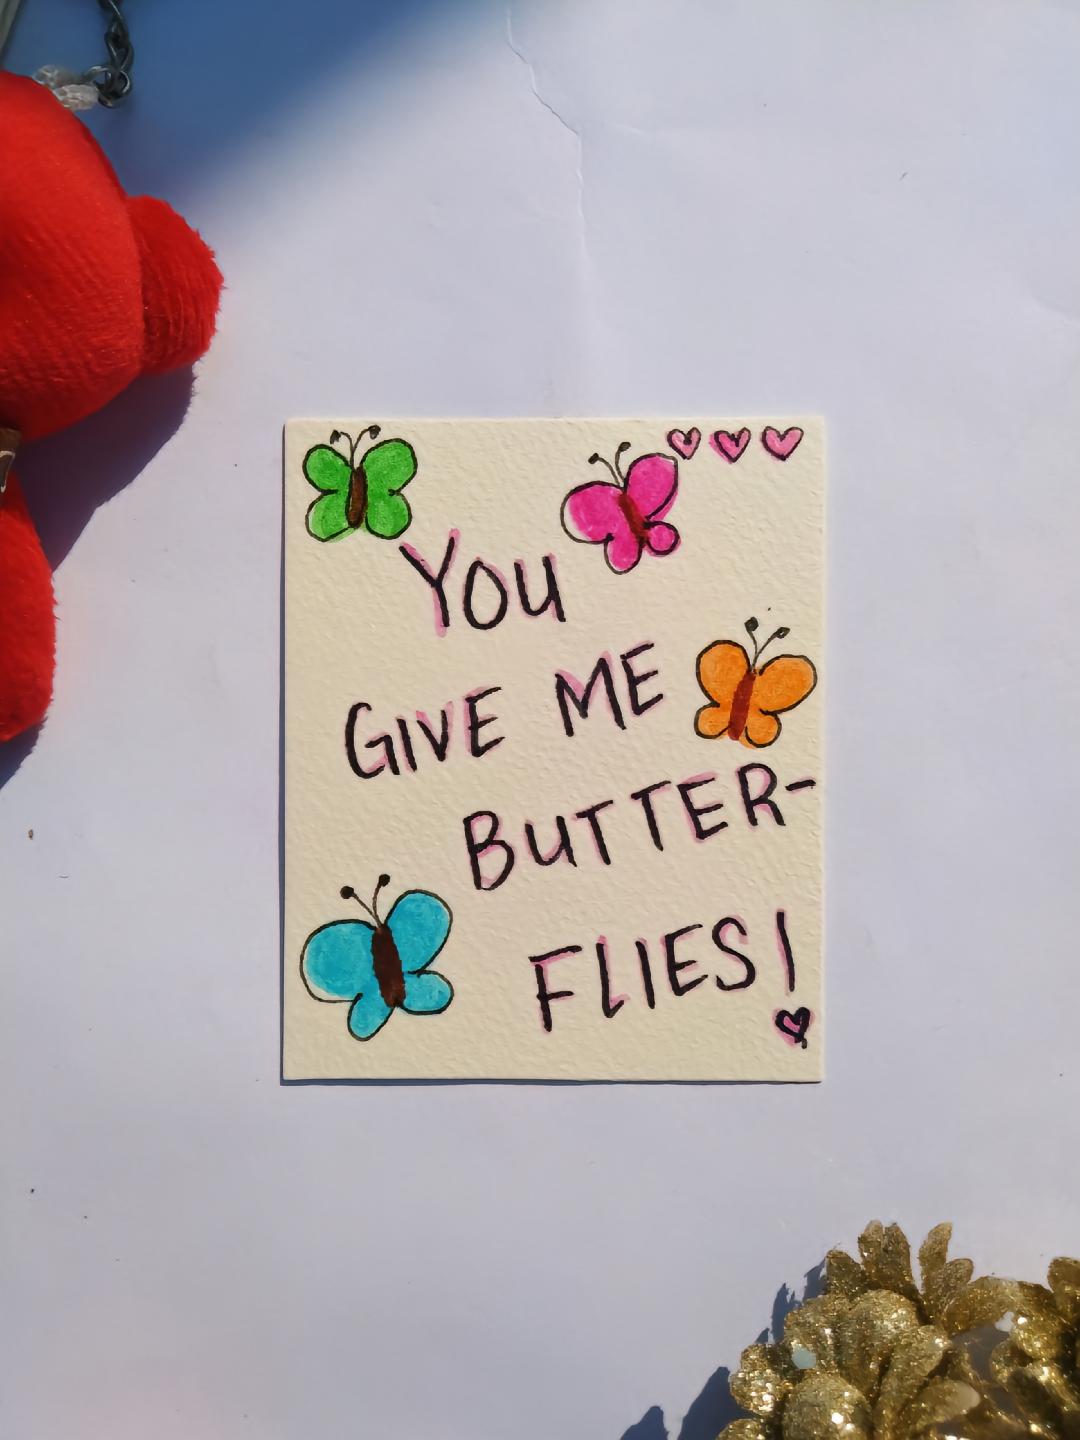 YOU
GIVE ME
BUTTER-
FLIES!